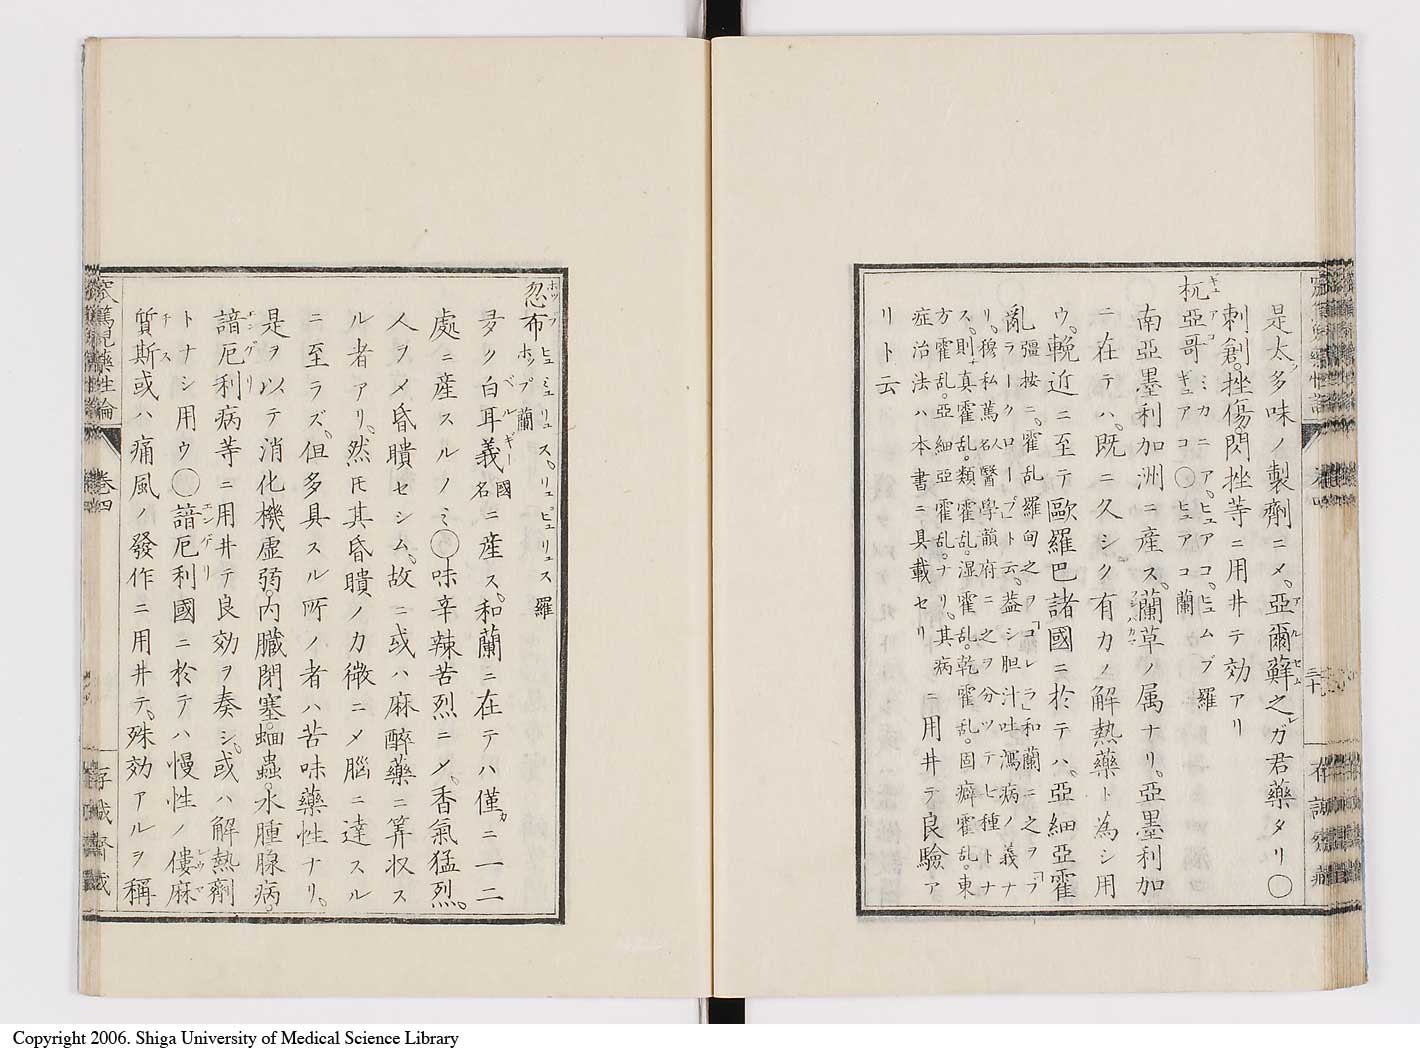 是太多味ノ製劑ニメ。亞爾蘇之ガ君藥タリ〇
刺創。挫傷。閃挫等ニ用井テ効アリ
杬亞哥ミカニア。ヒュアコ。ヒュムブ羅
ギュアコ蘭〇ヒュアコ蘭
南亞墨利加洲ニ産ス。蘭草ノ属ナリ。亞墨利加
ニ在テハ。既ニ久シク有力ノ解熱藥ト為シ用
ウ。輓近ニ至テ歐羅巴諸國ニ於テハ。亞細亞霍
亂彊按ニ。霍乱羅甸之ヲ「コレラ」和蘭ニ之ヲ「ブ
ラークローープ」ト云。蓋シ胆汁吐瀉病ノ義ナ
リ。穆私篤名医學韻府ニ之ヲ分ツテ七種トナ
ス。則真霍乱。類霍乱。湿霍乱。乾霍乱。固癖霍乱。東
方霍乱。亞細亞霍乱。ナリ。其病
症治法ハ本書ニ具載セリ
ニ用井テ良驗ア
リト云
三十
忽布ヒュミュリュス。リュピュリュス羅
ホップ蘭
多ク白耳義國名ニ産ス。和蘭ニ在テハ僅ニ一二
處ニ産スルノミ〇味辛辣苦烈ニメ。香氣猛烈。
人ヲメ昏瞶セシム。故ニ或ハ麻醉藥ニ算収ス
ル者アリ。然氏其昏瞶ノ力微ニメ腦ニ達スル
ニ至ラズ。但多具スル所ノ者ハ苦味藥性ナリ。
是ヲ以テ消化機虚弱。内臓閉塞。蛔蟲。水腫腺病。
諳厄利病等ニ用井テ良効ヲ奏シ。或ハ解熱劑
トナシ用ウ〇諳厄利國ニ於テハ慢性ノ僂麻
質斯或ハ痛風ノ發作ニ用井テ。殊効アルヲ稱
窊篤兒藥性論
卷四
存誠齋藏
Copyright 2006. Shiga University of Medical Science Library